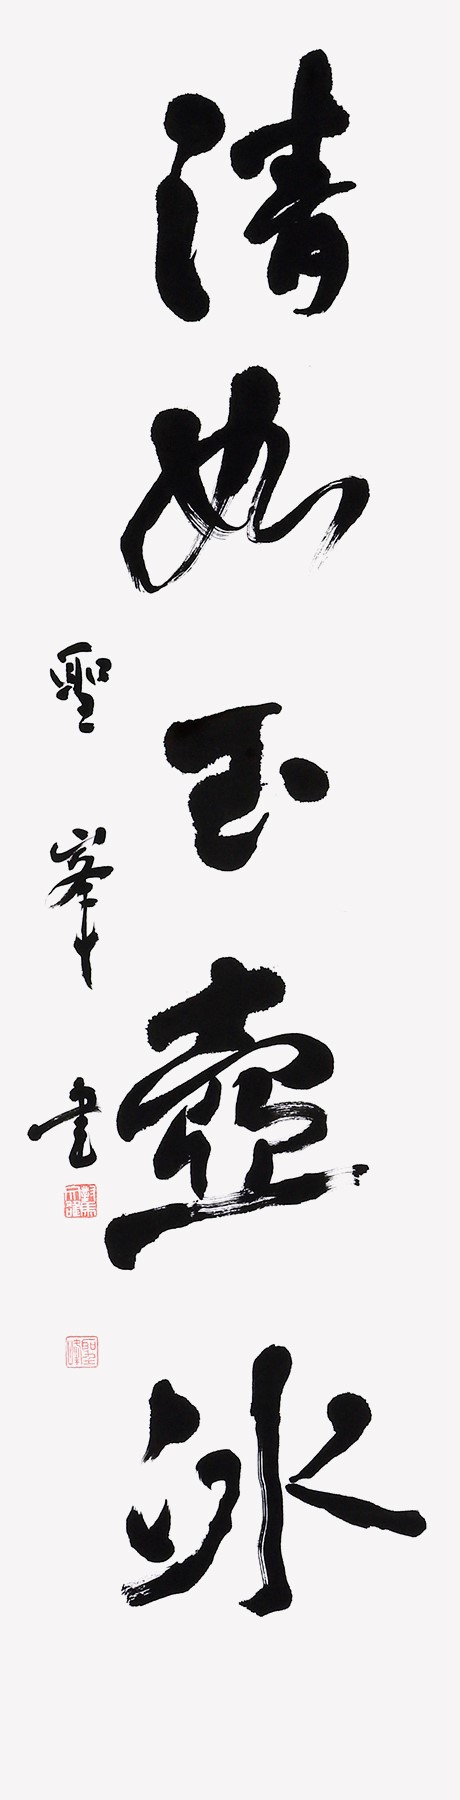 清如玉壺冰
聖峯書